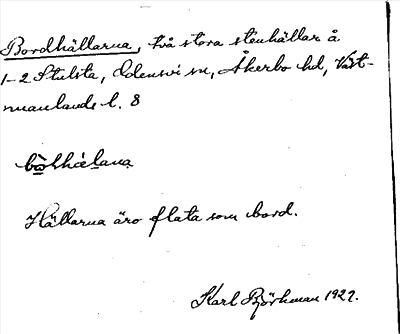 Bordhällarna, två stora stenhällar å
1-2 Stulsta, Odensvi sn, Åkerbo hd, Väst-
manlands l. 8
Hällarna äro flata som bord.
Karl Björkman 1927.